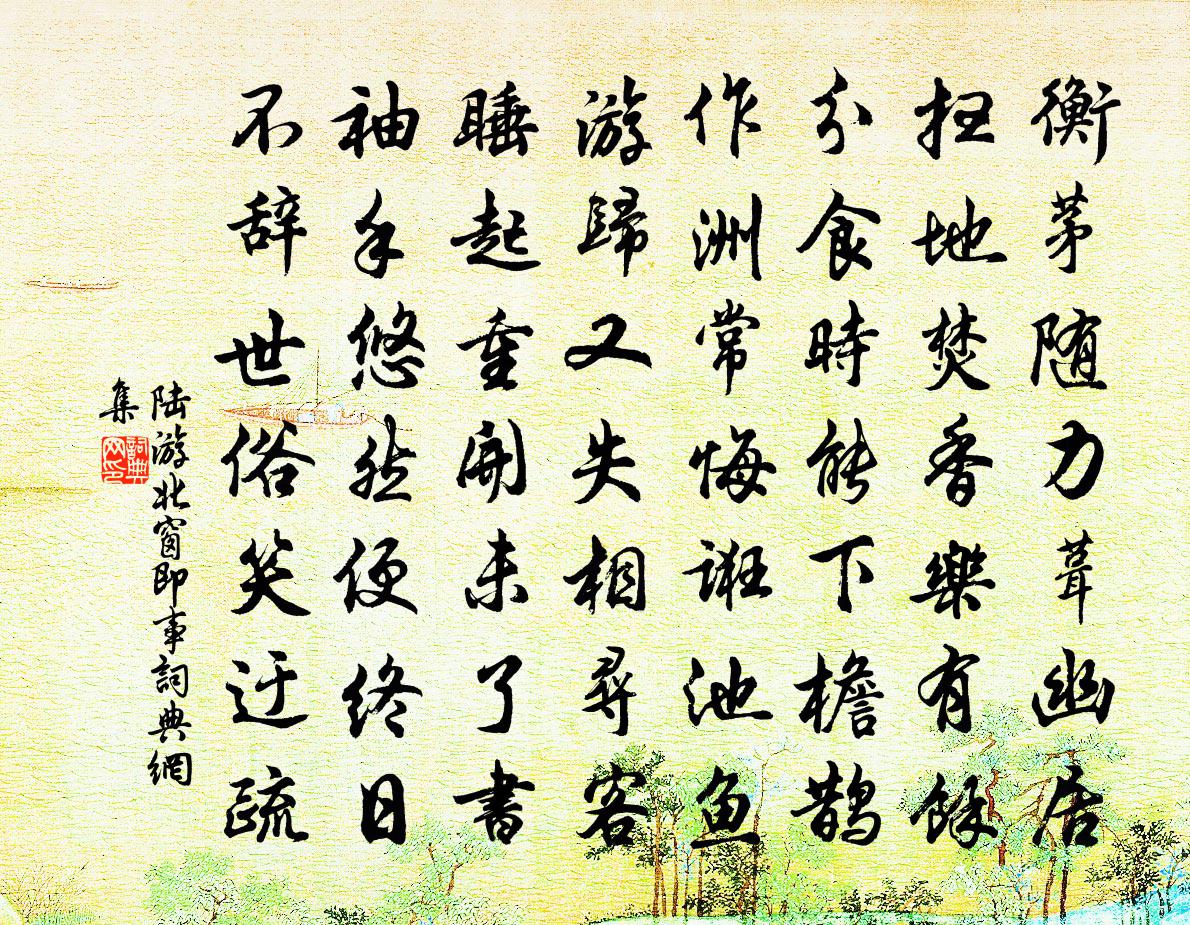 衡茅随力葺幽居
扫地焚香樂有餘
分食時能下檐鹊
作洲常悔诳池鱼
游歸又失相尋客
睡起重開未了書
袖手悠然便终日
不辞世俗笑迂疏
陆游北窗即事詞典網
集
詞典网印